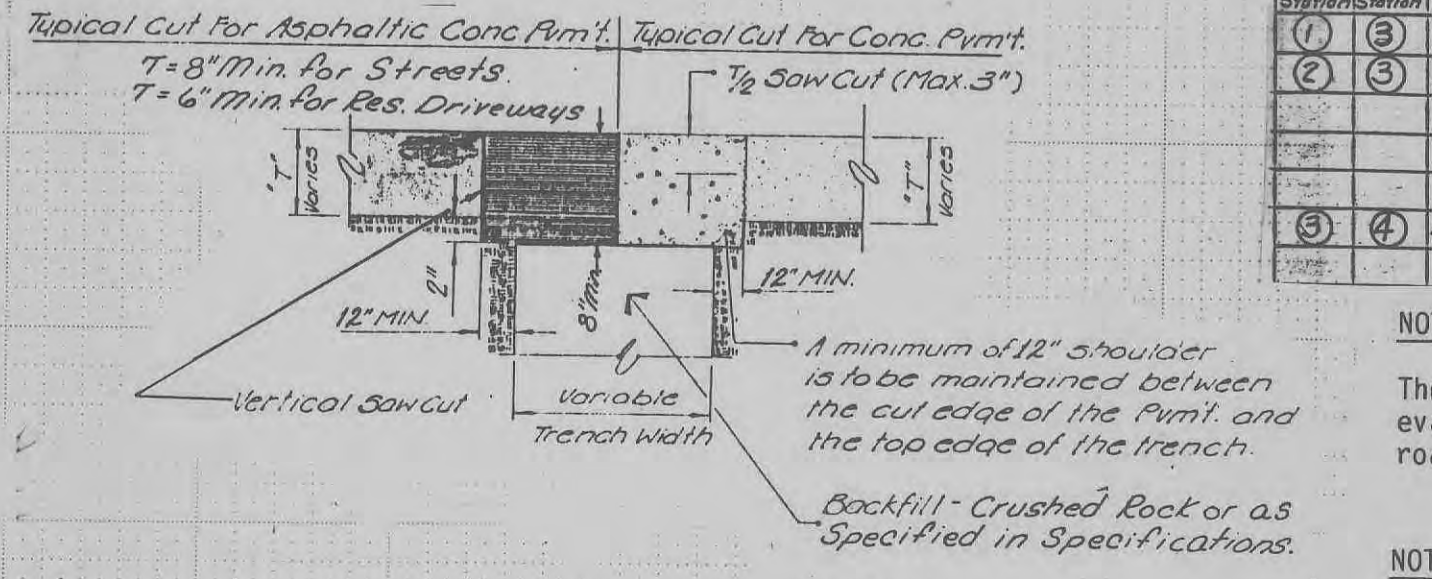 Typical Cut For Asphaltic Conc Pvm't.
Typical Cut For Conc. Pvm't.
T=8"Min. for Streets.
T=6"Min. for Res. Driveways
T/2 Saw Cut (Max. 3")
"T"
Varies
"T"
Varies
2"
8"Min.
12" MIN.
12" MIN.
Vertical Saw Cut
Variable
Trench Width
A minimum of 12" shoulder
is to be maintained between
the cut edge of the Pvm't. and
the top edge of the trench.
Backfill - Crushed Rock or as
Specified in Specifications.
Station Station
1 3
2 3
3 4